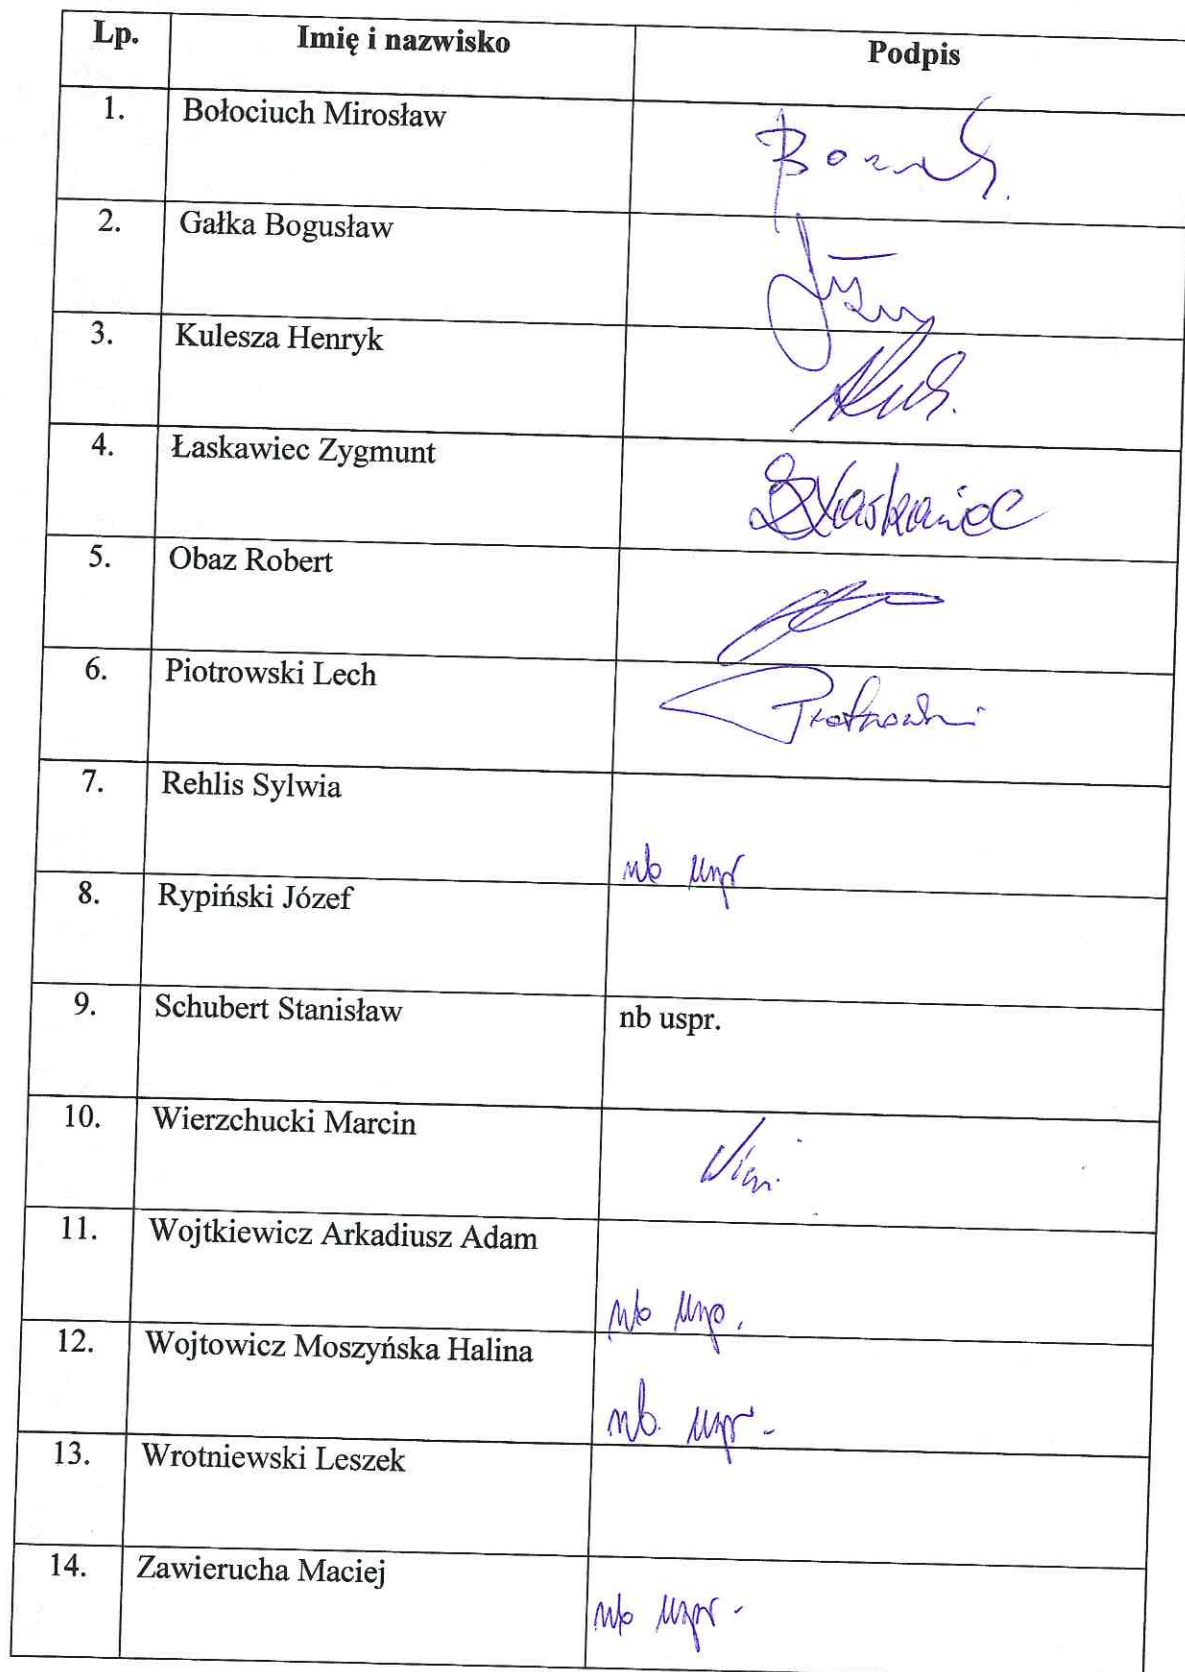 Lp. Imię i nazwisko Podpis
1. Bołociuch Mirosław
2. Gałka Bogusław
3. Kulesza Henryk
4. Łaskawiec Zygmunt
5. Obaz Robert
6. Piotrowski Lech Piotrowski
7. Rehlis Sylwia nb uspr
8. Rypiński Józef
9. Schubert Stanisław nb uspr.
10. Wierzchucki Marcin
11. Wojtkiewicz Arkadiusz Adam nb usp.
12. Wojtowicz Moszyńska Halina nb. uspr-
13. Wrotniewski Leszek
14. Zawierucha Maciej nb uspr-